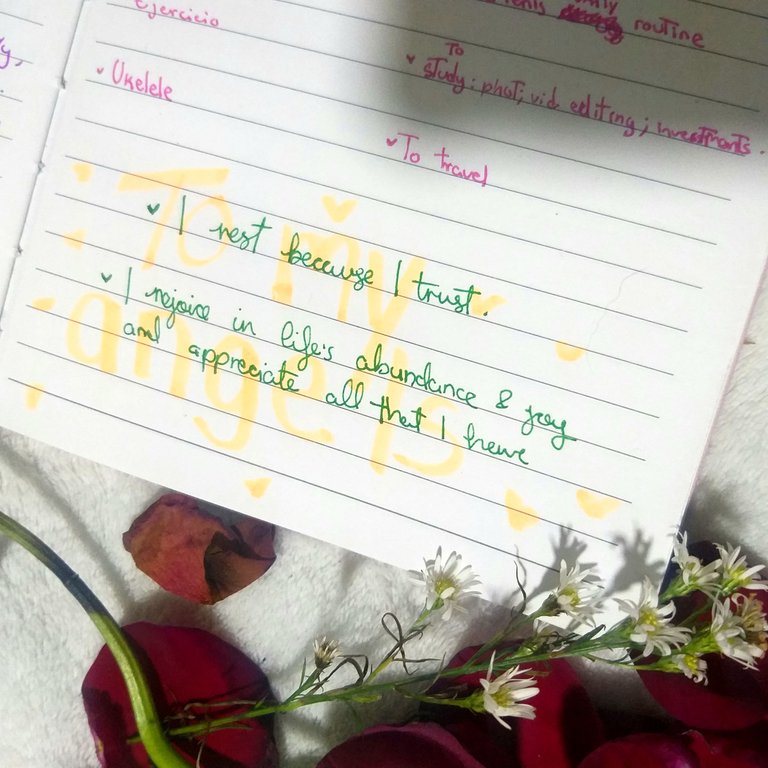 Ejercicio
routine
Ukelele
To
study: phot; vid editing; investments.
To travel
To my
angels
I rest because I trust.
I rejoice in life's abundance & joy
and appreciate all that I have